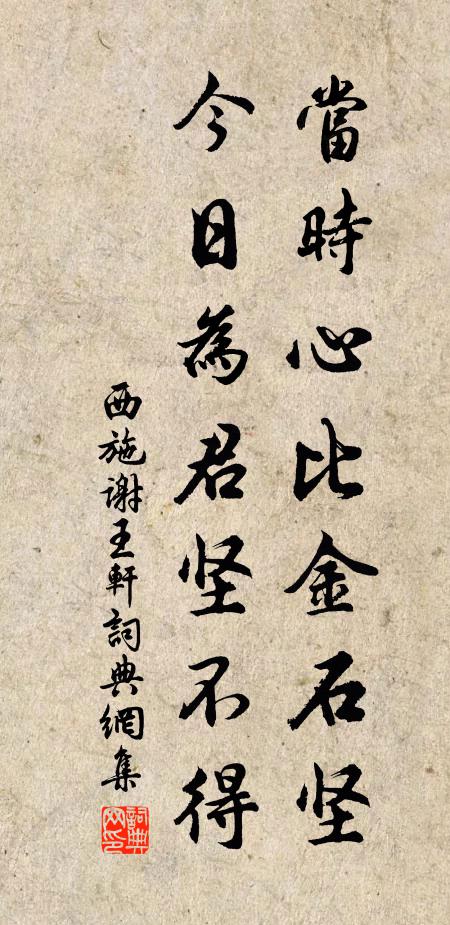 當時心比金石坚
今日為君坚不得
西施謝王軒詞典網集
詞典网印